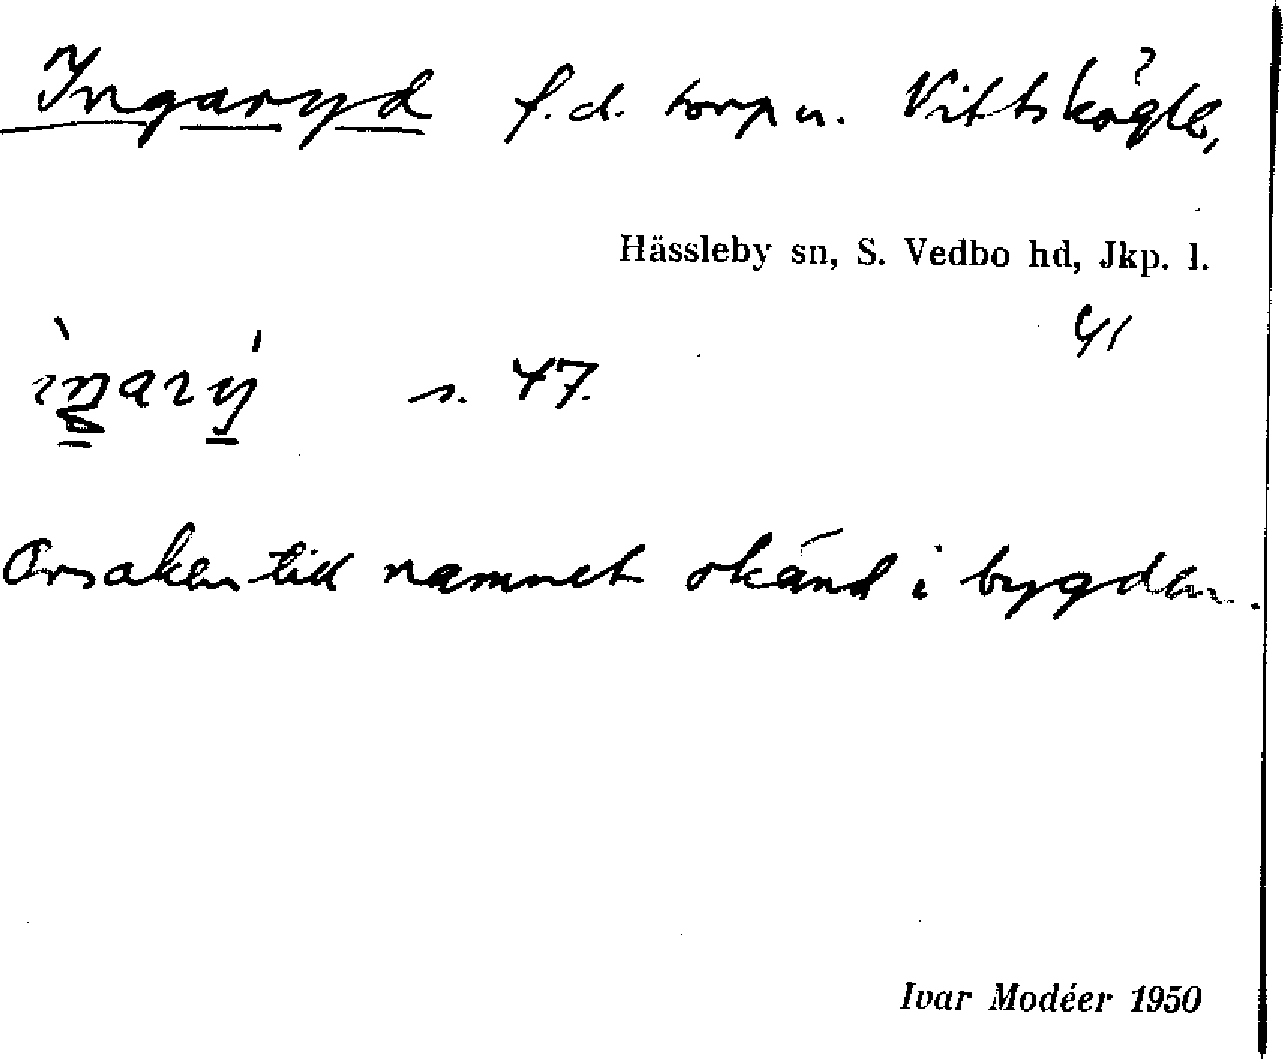 Ingaryd f.d. torp u. Vittskögle,
Hässleby sn, S. Vedbo hd, Jkp. l.
41
s. 47.
Orsaken till namnet okänd i bygden.
Ivar Modéer 1950